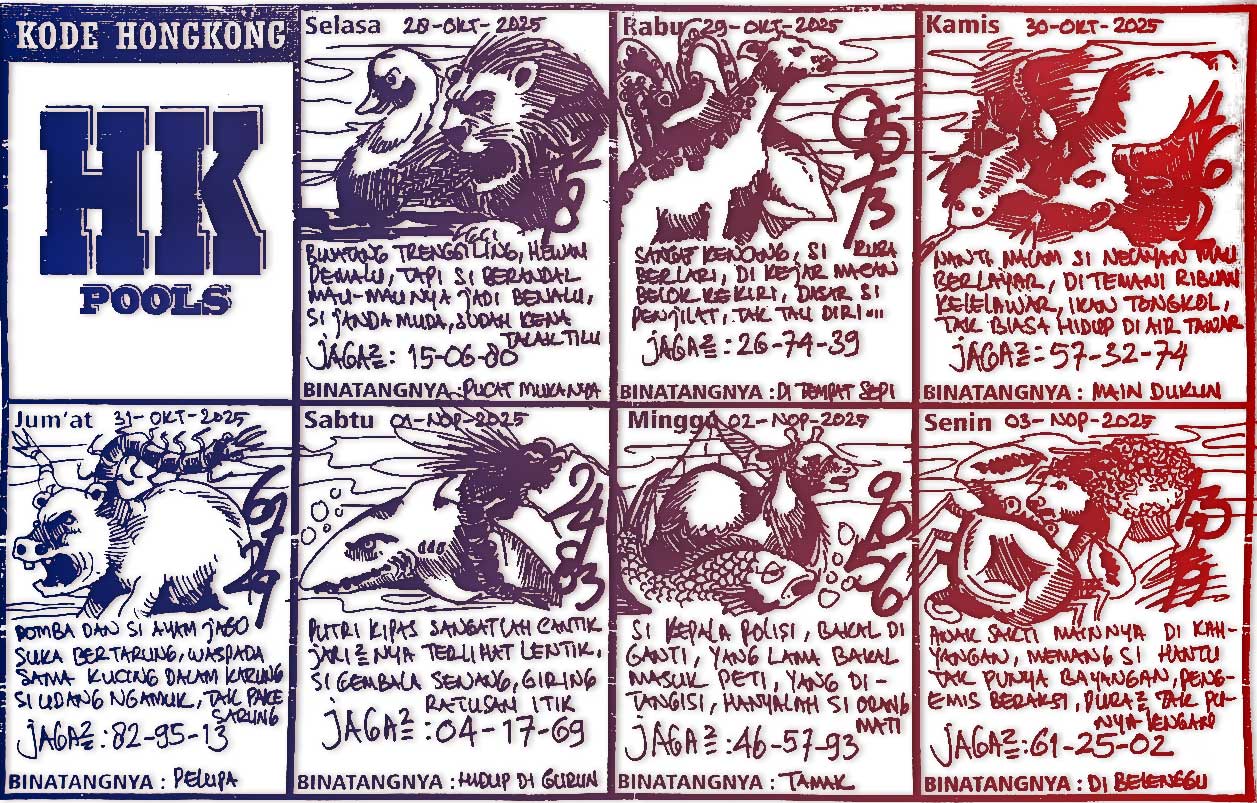 KODE HONGKONG
HK
POOLS
Selasa 28-OKT-2025
BINATANG TRENGGILING, HEWAN
PEMALU, TAPI SI BERANDAL
MAU-MAUNYA JADI BENALU,
SI JANDA MUDA, SUDAH KENA
TALAK TILU
JAGA2: 15-06-80
BINATANGNYA : PUCAT MUKANYA
Rabu 29-OKT-2025
05
73
SANGAT KENCANG, SI KUDA
BERLARI, DI KEJAR MACAN
BELOK KE KIRI, DASAR SI
PENJILAT, TAK TAU DIRI....
JAGA2: 26-74-39
BINATANGNYA : DI TEMPAT SEPI
Kamis 30-OKT-2025
NANTI MALAM SI NELAYAN MAU
BERLAYAR, DI TEMANI RIBUAN
KELELAWAR, IKAN TONGKOL,
TAK BIASA HIDUP DI AIR TAWAR
JAGA2: 57-32-74
BINATANGNYA : MAIN DUKUN
Jum'at 31-OKT-2025
67
29
DOMBA DAN SI AYAM JAGO
SUKA BERTARUNG, WASPADA
SAMA KUCING DALAM KARUNG
SI UDANG NGAMUK, TAK PAKE
SARUNG
JAGA2: 82-95-13
BINATANGNYA : PELUPA
Sabtu 01-NOP-2025
24
83
PUTRI KIPAS SANGATLAH CANTIK
JARI2 NYA TERLIHAT LENTIK,
SI GEMBALA SENANG, GIRING
RATUSAN ITIK
JAGA2: 04-17-69
BINATANGNYA : HIDUP DI GURUN
Minggu 02-NOP-2025
90
56
SI KEPALA POLISI, BAKAL DI
GANTI, YANG LAMA BAKAL
MASUK PETI, YANG DI-
TANGISI, HANYALAH SI ORANG
MATI
JAGA2: 46-57-93
BINATANGNYA : TAMAK
Senin 03-NOP-2025
ANAK SAKTI MAINNYA DI KAH-
YANGAN, MEMANG SI HANTU
TAK PUNYA BAYANGAN, PENG-
EMIS BERAKSI, PURA2 TAK PU-
NYA LENGAN
JAGA2: 61-25-02
BINATANGNYA : DI BELENGGU